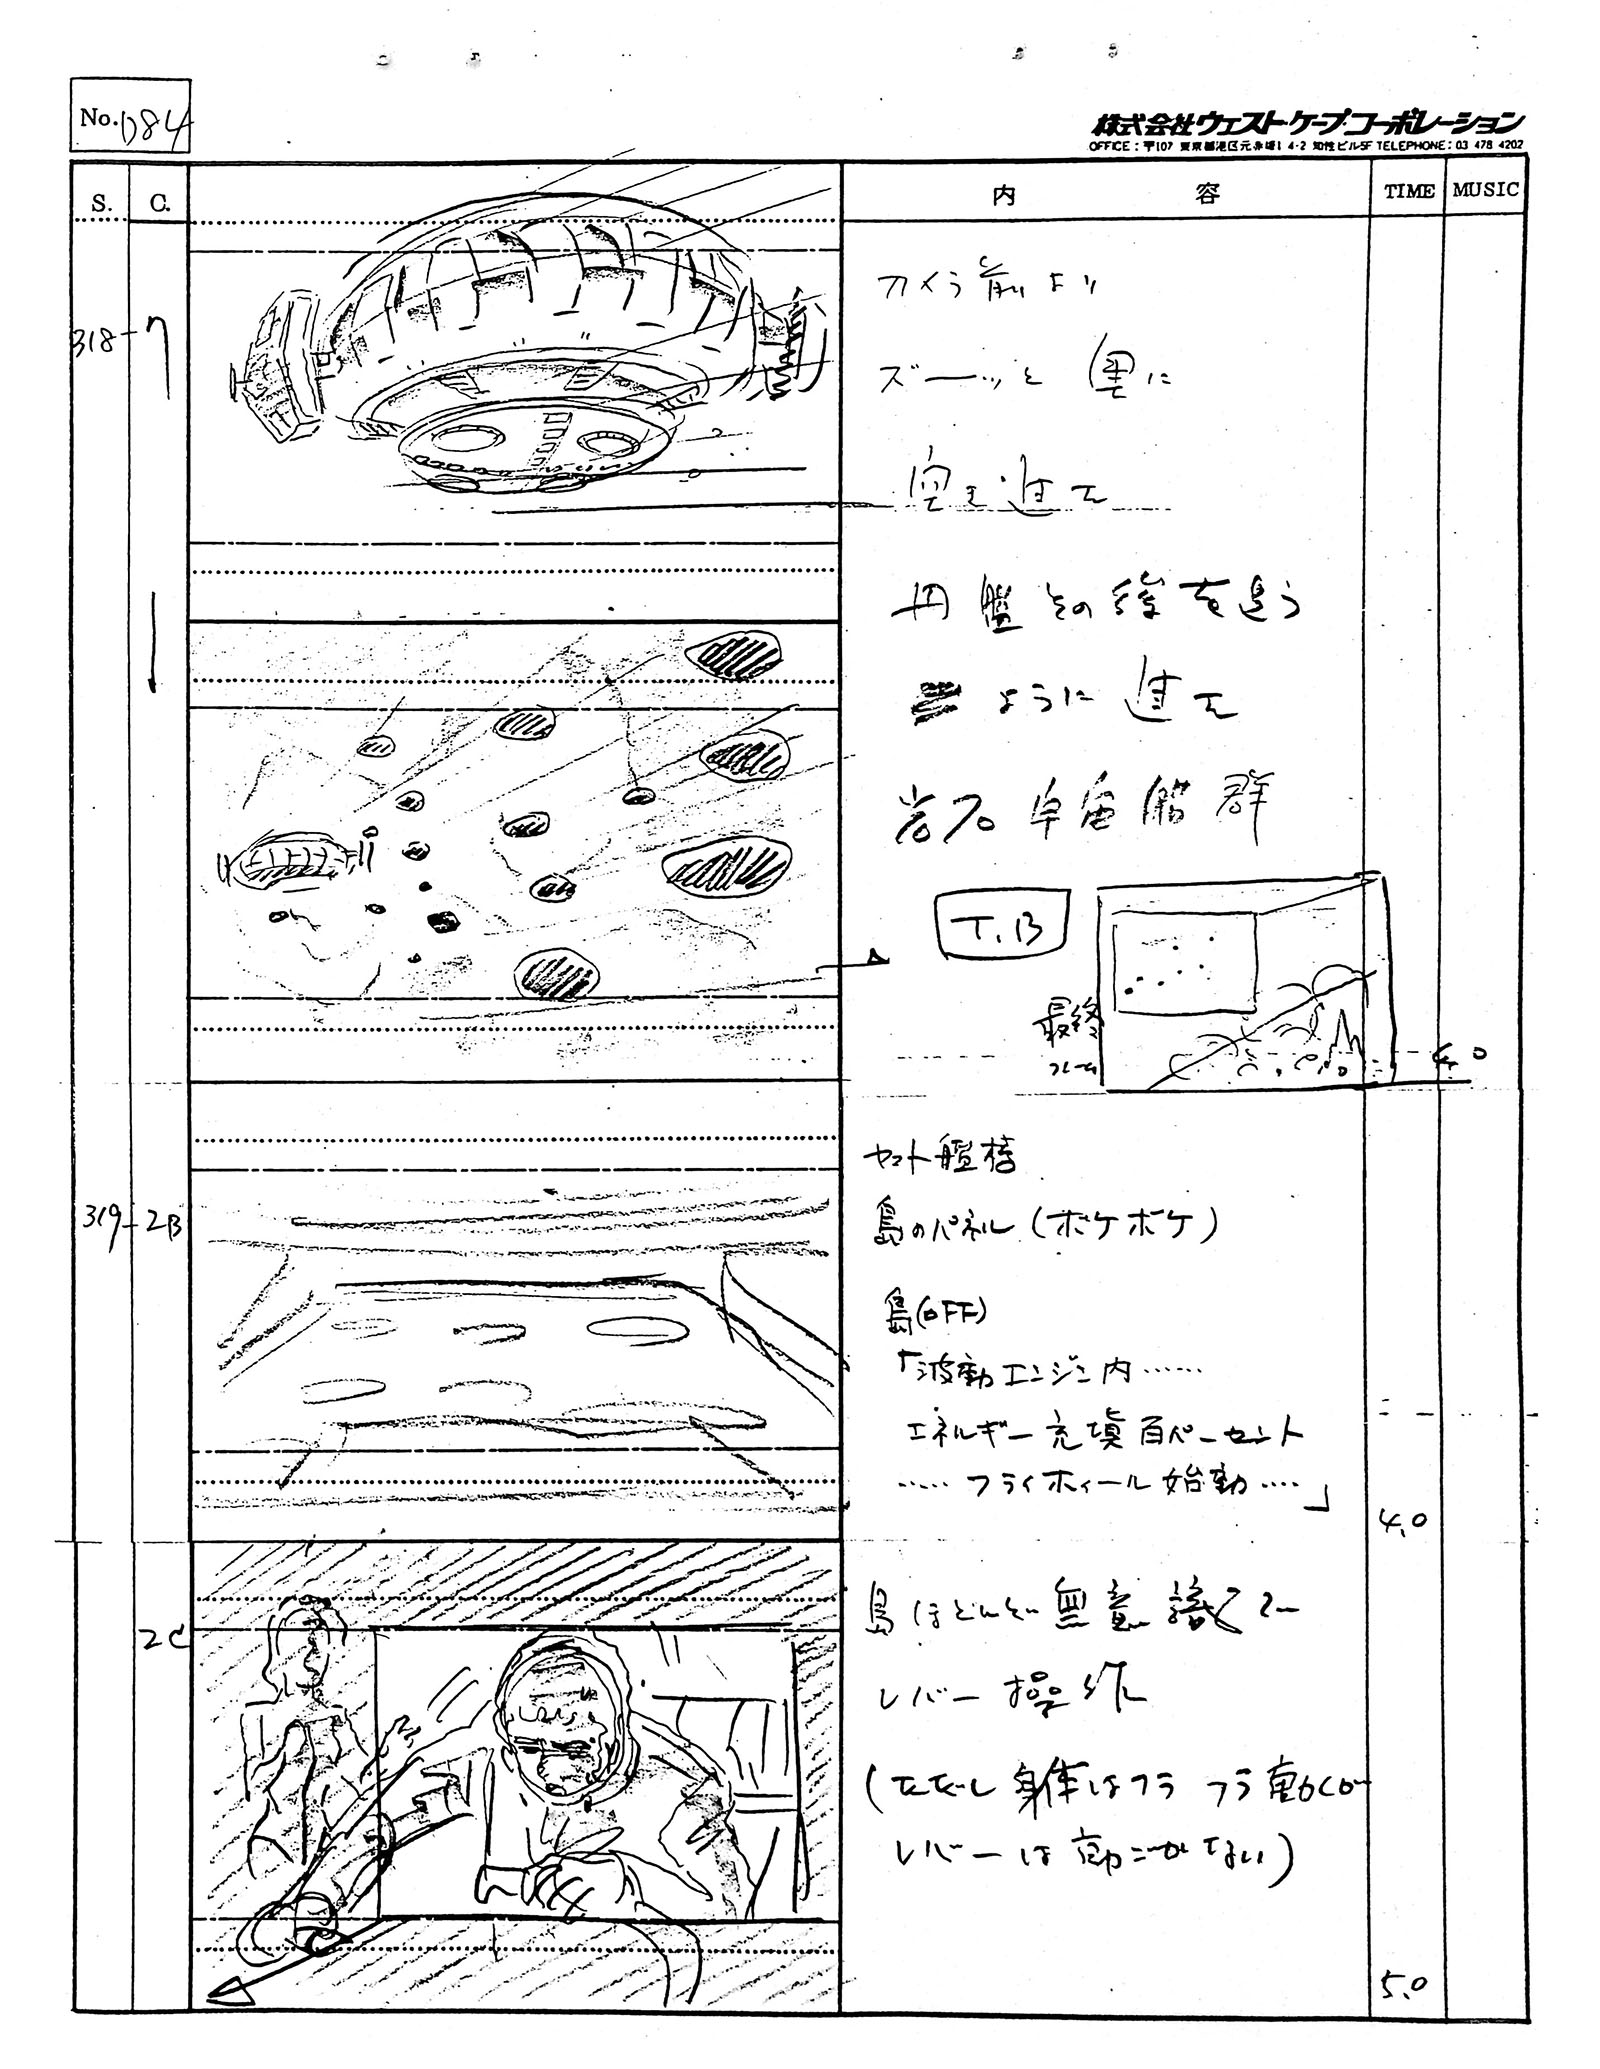 No. D84
株式会社ウェスト・ケープ・コーポレーション
OFFICE:〒107 東京都港区元赤坂1 4-2 知性ビル5F TELEPHONE:03 478 4202
S. C. 内 容 TIME MUSIC
318-7
カメラ前より
ズーッと奥に
空を進む
円盤その後を追う
ように進む
岩石宇宙船群
T.B
最終
フレーム
4.0
319-2B
ヤマト艦橋
島のパネル(ボケボケ)
島(OFF)
「波動エンジン内……
エネルギー充填百パーセント
……フライホイール始動……」
4.0
2C
島ほとんど無意識で
レバー操作
(ただし身体はフラフラ動くが
レバーは動かない)
5.0